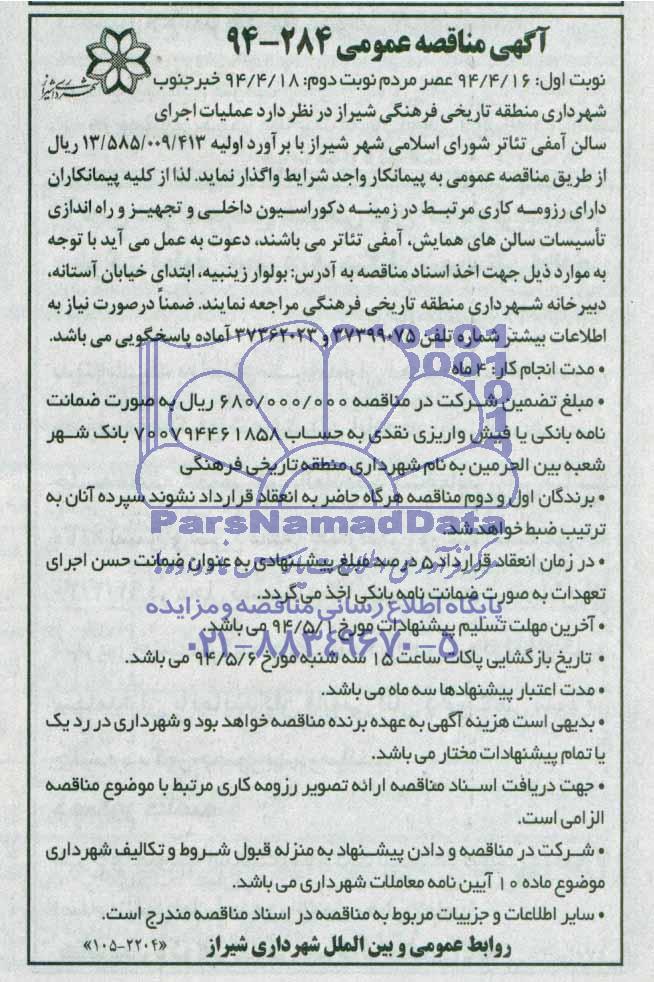 آگهی مناقصه عمومی ۲۸۴-۹۴
شهرداری شیراز
نوبت اول: ۹۴/۴/۱۶ عصر مردم نوبت دوم: ۹۴/۴/۱۸ خبر جنوب
شهرداری منطقه تاریخی فرهنگی شیراز در نظر دارد عملیات اجرای
سالن آمفی تئاتر شورای اسلامی شهر شیراز با برآورد اولیه ۱۳/۵۸۵/۰۰۹/۴۱۳ ریال
از طریق مناقصه عمومی به پیمانکار واجد شرایط واگذار نماید. لذا از کلیه پیمانکاران
دارای رزومه کاری مرتبط در زمینه دکوراسیون داخلی و تجهیز و راه اندازی
تأسیسات سالن های همایش، آمفی تئاتر می باشند، دعوت به عمل می آید با توجه
به موارد ذیل جهت اخذ اسناد مناقصه به آدرس: بولوار زینبیه، ابتدای خیابان آستانه،
دبیرخانه شهرداری منطقه تاریخی فرهنگی مراجعه نمایند. ضمناً درصورت نیاز به
اطلاعات بیشتر شماره تلفن ۳۷۳۹۹۰۷۵ و ۳۷۳۶۲۰۲۳ آماده پاسخگویی می باشد.
• مدت انجام کار: ۴ ماه
• مبلغ تضمین شرکت در مناقصه ۶۸۰/۰۰۰/۰۰۰ ریال به صورت ضمانت
نامه بانکی یا فیش واریزی نقدی به حساب ۷۰۰۷۹۴۴۶۱۸۵۸ بانک شهر
شعبه بین الحرمین به نام شهرداری منطقه تاریخی فرهنگی
• برندگان اول و دوم مناقصه هرگاه حاضر به انعقاد قرارداد نشوند سپرده آنان به
ترتیب ضبط خواهد شد.
• در زمان انعقاد قرارداد ۵ درصد مبلغ پیشنهادی به عنوان ضمانت حسن اجرای
تعهدات به صورت ضمانت نامه بانکی اخذ می گردد.
• آخرین مهلت تسلیم پیشنهادات مورخ ۹۴/۵/۱ می باشد.
• تاریخ بازگشایی پاکات ساعت ۱۵ سه شنبه مورخ ۹۴/۵/۶ می باشد.
• مدت اعتبار پیشنهادها سه ماه می باشد.
• بدیهی است هزینه آگهی به عهده برنده مناقصه خواهد بود و شهرداری در رد یک
یا تمام پیشنهادات مختار می باشد.
• جهت دریافت اسناد مناقصه ارائه تصویر رزومه کاری مرتبط با موضوع مناقصه
الزامی است.
• شرکت در مناقصه و دادن پیشنهاد به منزله قبول شروط و تکالیف شهرداری
موضوع ماده ۱۰ آیین نامه معاملات شهرداری می باشد.
• سایر اطلاعات و جزییات مربوط به مناقصه در اسناد مناقصه مندرج است.
روابط عمومی و بین الملل شهرداری شیراز «۲۲۰۴-۱۰۵»
ParsNamadData
پایگاه اطلاع رسانی مناقصه و مزایده
۰۲۱-۸۸۳۴۹۶۷۰-۵